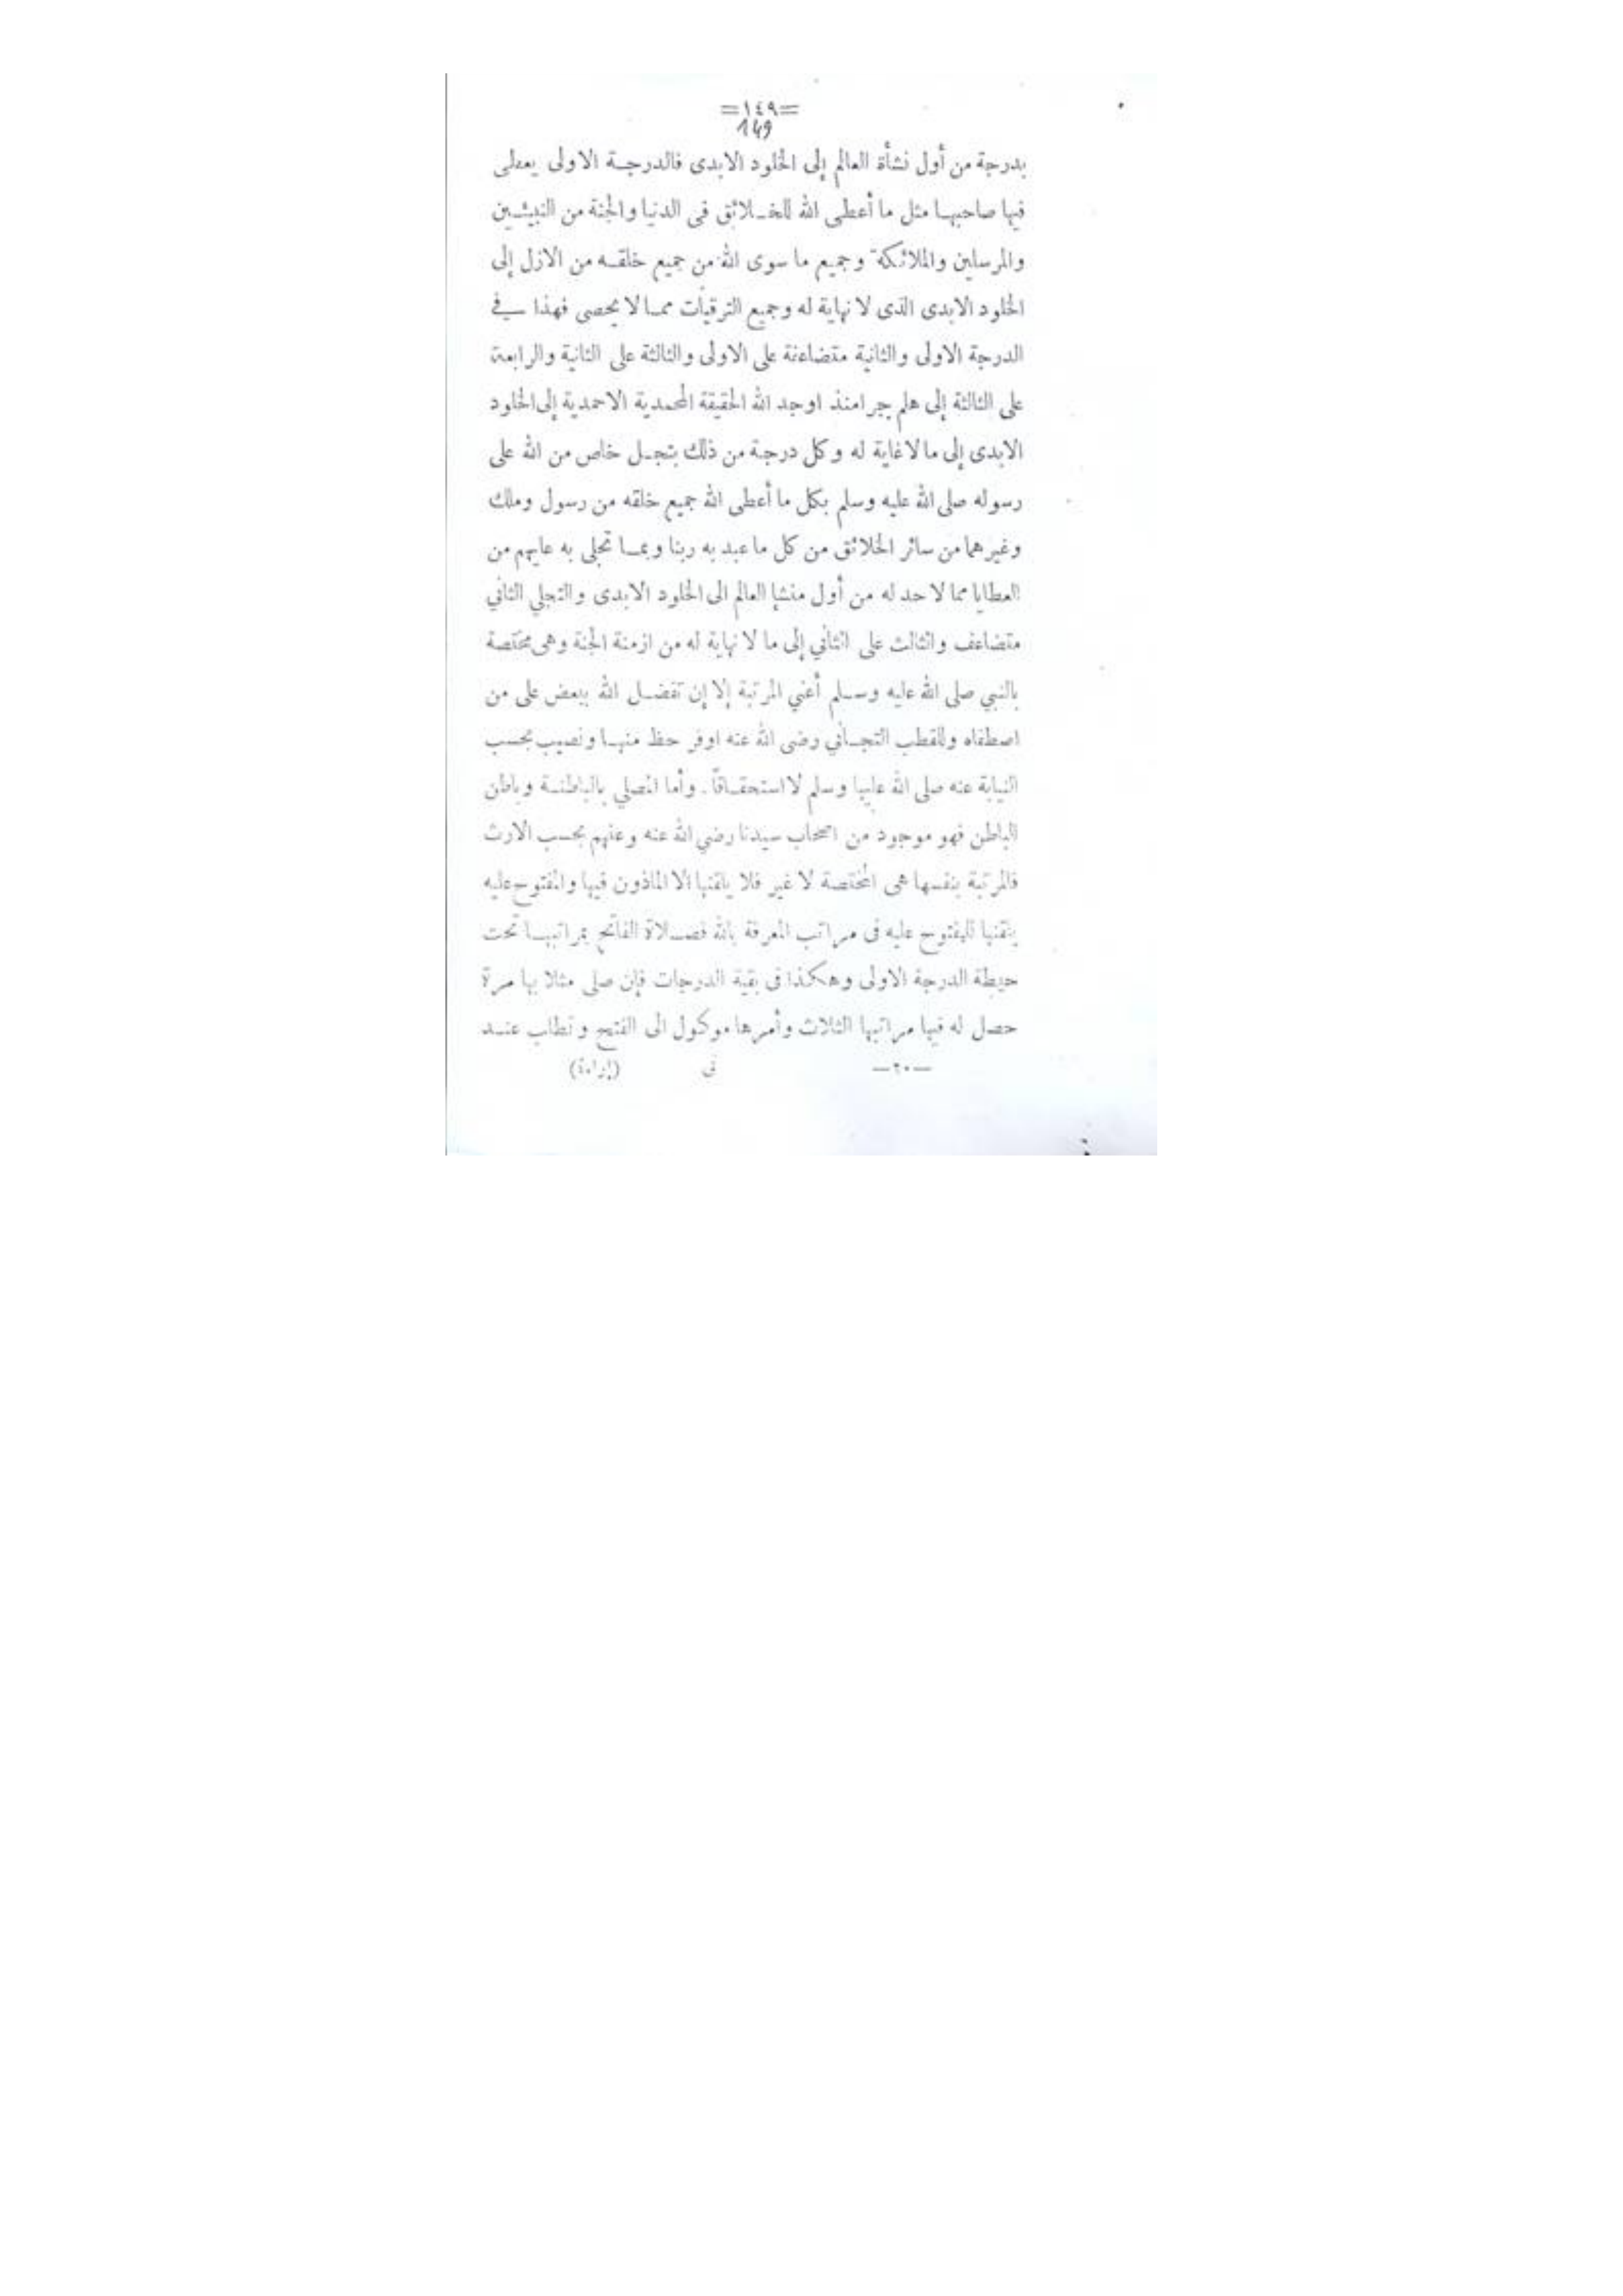 =١٤٩=
149
بدرجة من أول نشأة العالم إلى الخلود الابدى فالدرجة الاولى يعطى
فيها صاحبها مثل ما أعطى الله للخلائق فى الدنيا والجنة من النبيئين
والمرسلين والملائكة وجميع ما سوى الله من جميع خلقه من الازل إلى
الخلود الابدى الذى لا نهاية له وجميع الترقيات مما لا يحصى فهذا في
الدرجة الاولى والثانية متضاعفة على الاولى والثالثة على الثانية والرابعة
على الثالثة إلى هلم جرا منذ اوجد الله الحقيقة المحمدية الاحمدية إلى الخلود
الابدى إلى ما لا غاية له وكل درجة من ذلك بتجل خاص من الله على
رسوله صلى الله عليه وسلم بكل ما أعطى الله جميع خلقه من رسول وملك
وغيرهما من سائر الخلائق من كل ما عبد به ربنا وبما تجلى به عليهم من
العطايا مما لا حد له من أول منشإ العالم الى الخلود الابدى والتجلي الثاني
متضاعف والثالث على الثاني إلى ما لا نهاية له من ازمنة الجنة وهى مختصة
بالنبي صلى الله عليه وسلم أعني المرتبة إلا إن تفضل الله ببعض على من
اصطفاه وللقطب التجاني رضى الله عنه اوفر حظ منها ونصيب بحسب
النيابة عنه صلى الله عليه وسلم لا استحقاقاً. وأما المصلي بالباطنة وباطن
الباطن فهو موجود من اصحاب سيدنا رضي الله عنه وعنهم بحسب الارث
فالمرتبة بنفسها هى المختصة لا غير فلا يلقنها الا الماذون فيها والمفتوح عليه
يلقنها للمفتوح عليه فى مراتب المعرفة بالله فصلاة الفاتح بمراتبها تحت
حيطة الدرجة الاولى وهكذا فى بقية الدرجات فإن صلى مثلا بها مرة
حصل له فيها مراتبها الثلاث وأمرها موكول الى الفتح وتطلب عند
—٢٠— فى (إراءة)